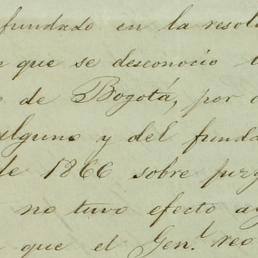 fundado en la resolu
que se desconocio
de Bogotá, por
alguno y del funda
de 1866 sobre
no tuvo efecto
que el Gen.l reo